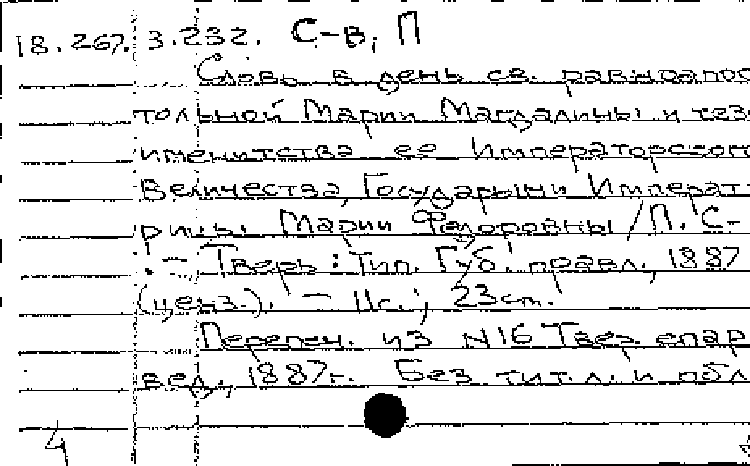 18.267.3.232. С-в, П
Слово в день св. равноапос
тольной Марии Магдалины и тез
именитства ее Императорског
Величества, Государыни Императ
рицы Марии Федоровны / П. С-
. - Тверь: Тип. Губ. правл., 1887
(ценз.). - 11с.; 23см.
Перепеч. из N16 Твер. епар
вед., 1887г. Без тит. л. и обл
4